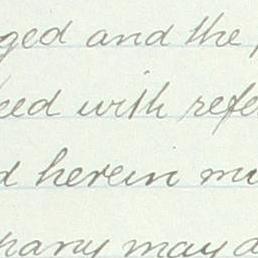 ged and the
eed with refe
d herein mu
pany may a